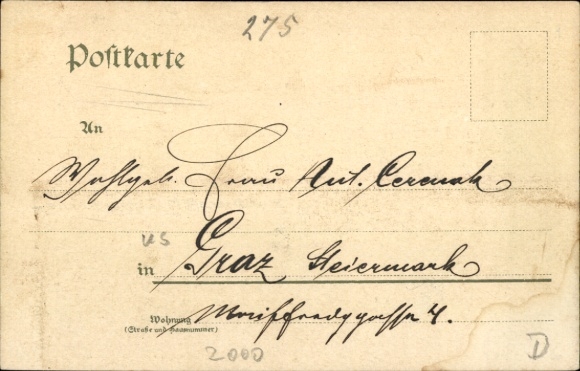 275
Postkarte
An
Wohlgeb. Frau Ant. Cermak
KS
in Graz Steiermark
Wohnung
(Straße und Hausnummer)
4.
2000
D